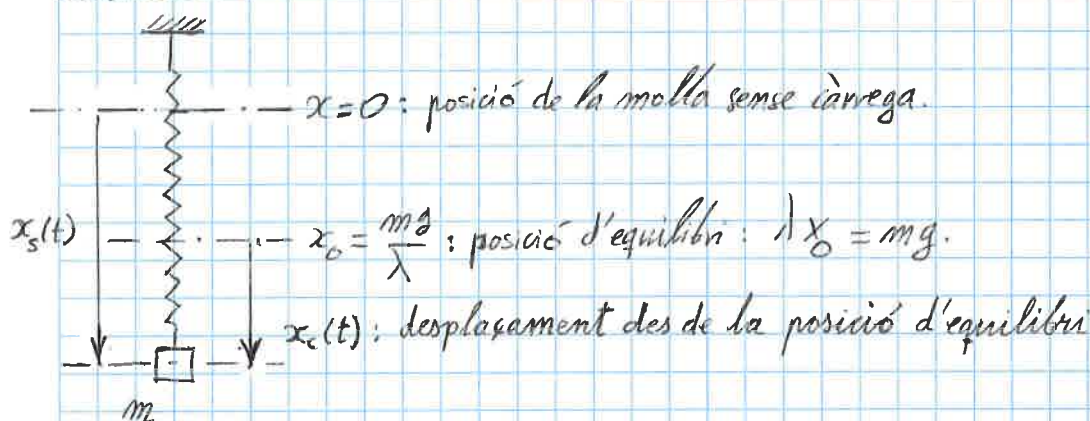 x=0: posició de la molla sense càrrega.
x_s(t)
x_0 = mg/λ : posició d'equilibri: λx_0 = mg.
x_c(t): desplaçament des de la posició d'equilibri
m